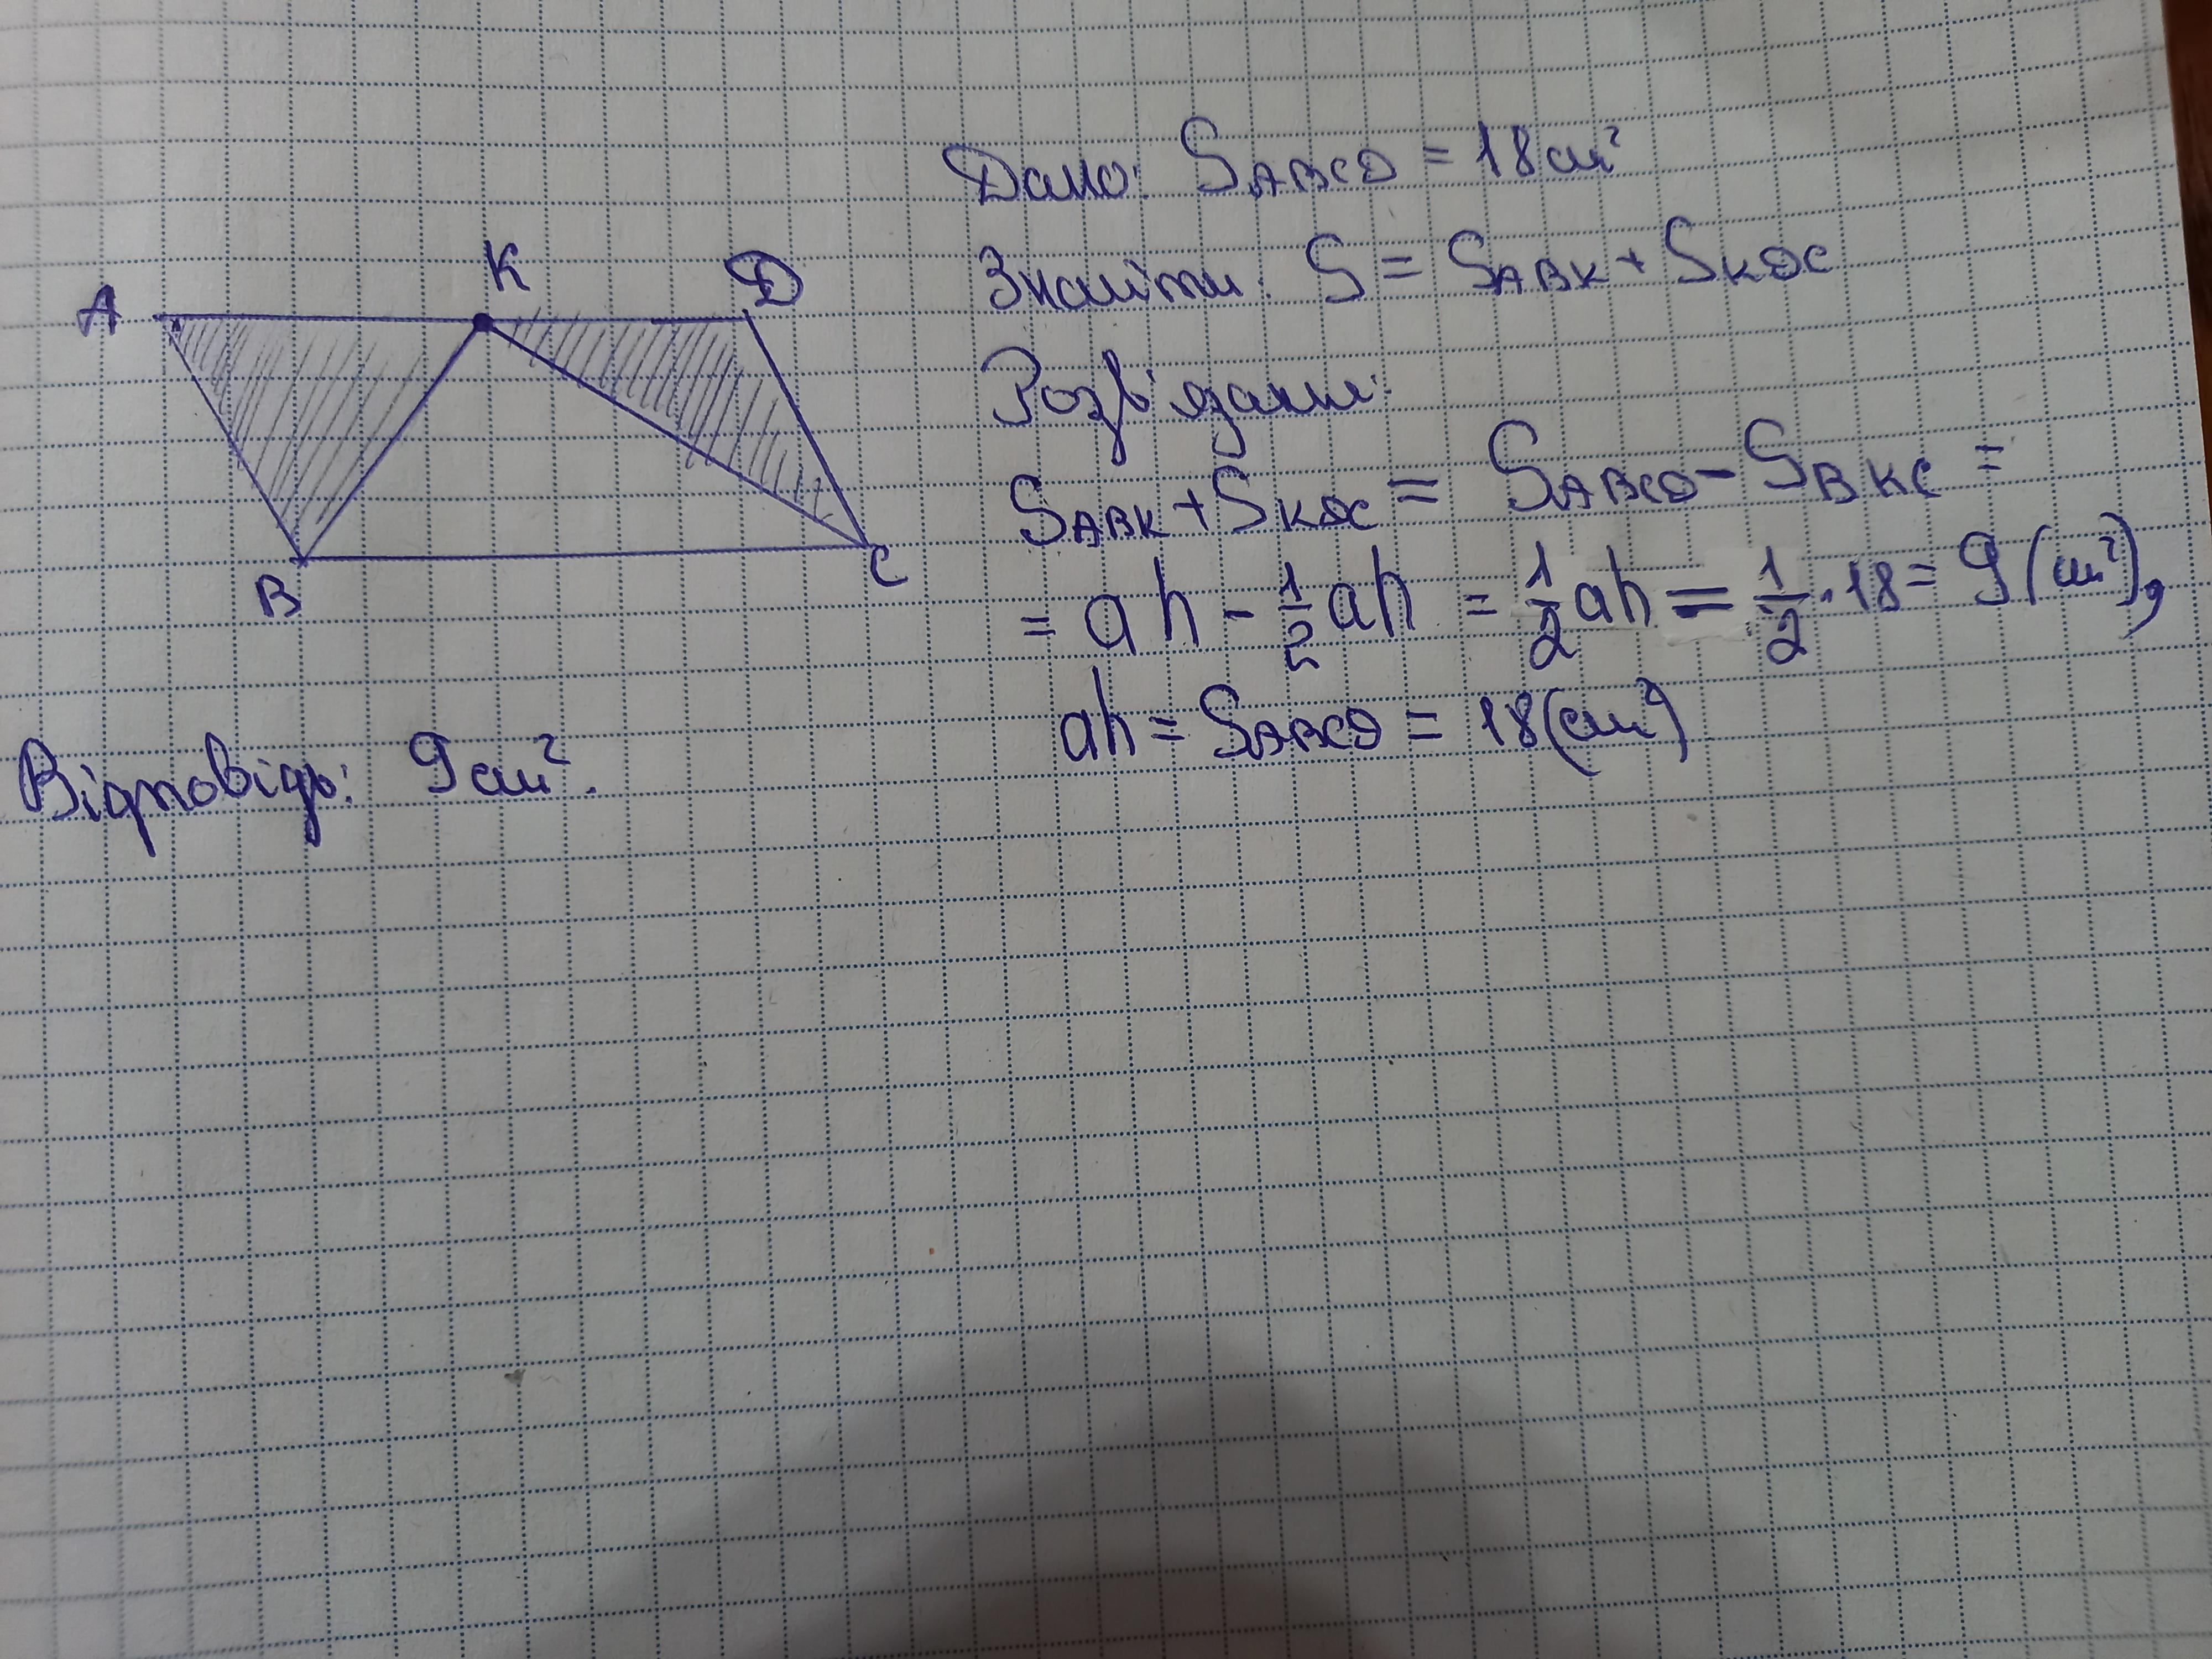 A
K
D
B
C
Дано: S_ABCD = 18 см²
Знайти: S = S_ABK + S_KDC
Розв'язання:
S_ABK + S_KDC = S_ABCD - S_BKC =
= ah - 1/2 ah = 1/2 ah = 1/2 · 18 = 9 (см²),
ah = S_ABCD = 18 (см²)
Відповідь: 9 см².